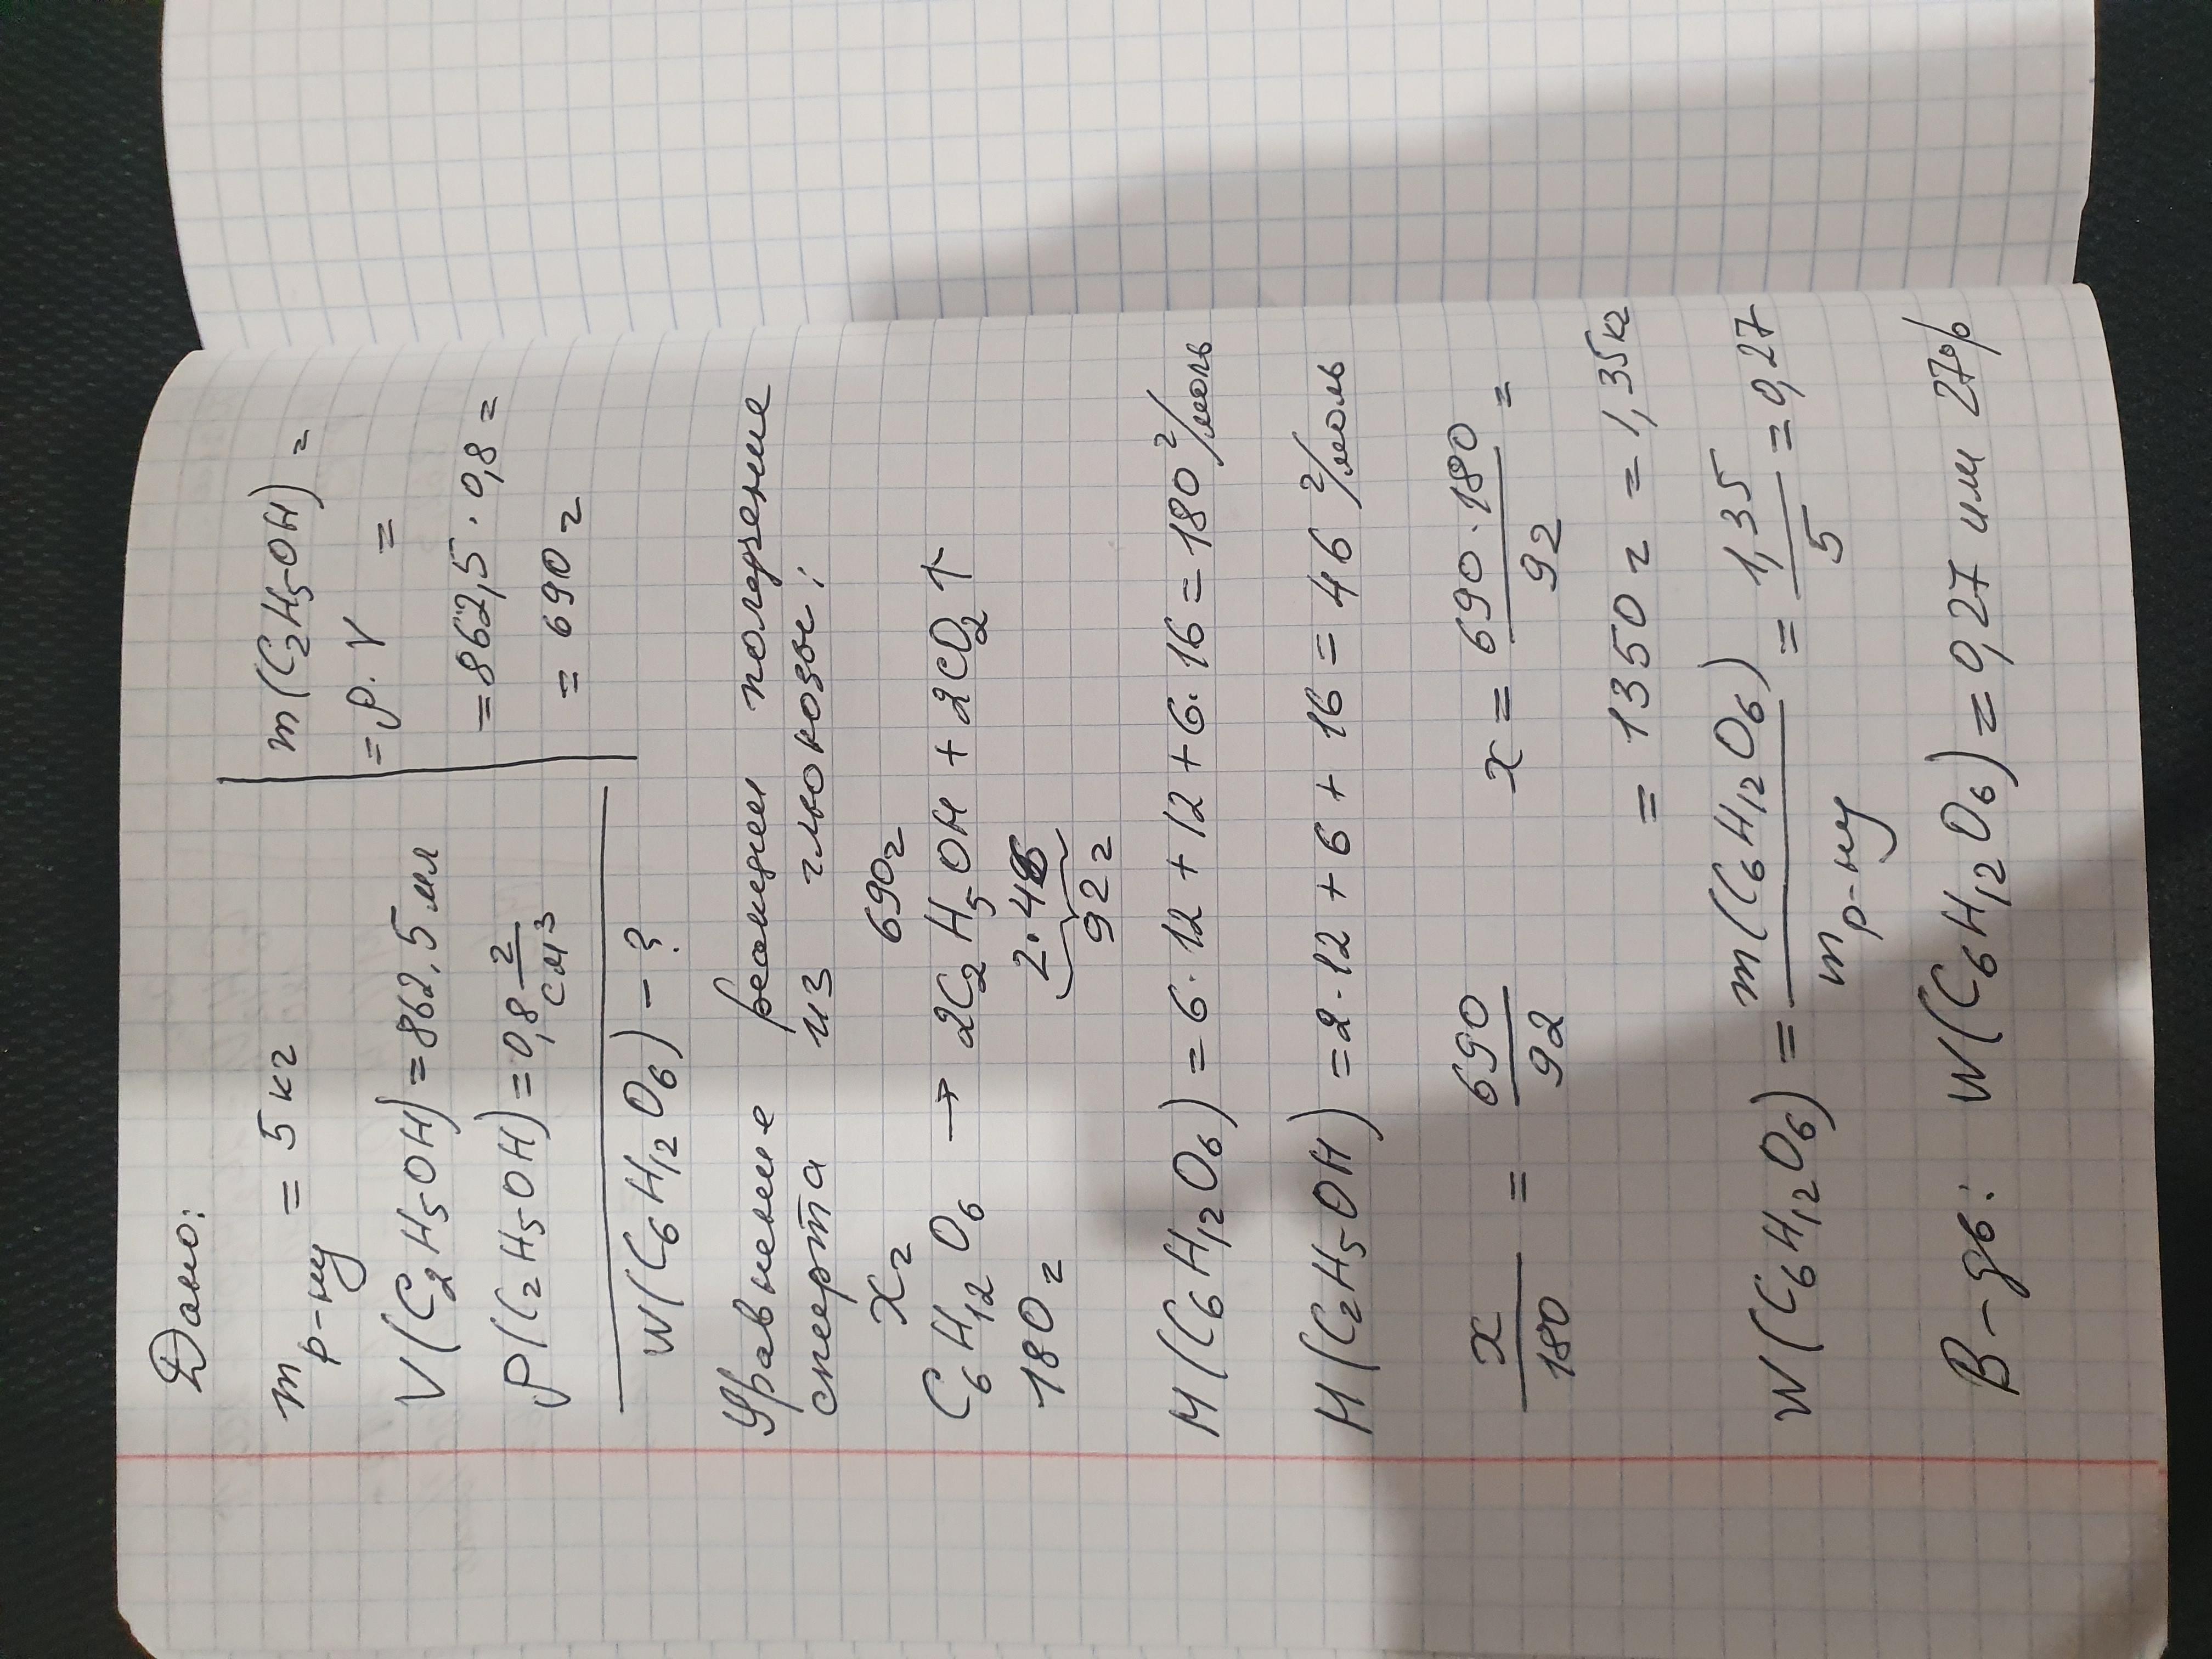 Дано:
m р-ну = 5 кг
V(C₂H₅OH) = 862,5 мл
ρ(C₂H₅OH) = 0,8 г/см³
W(C₆H₁₂O₆) - ?
m(C₂H₅OH) =
= ρ · V =
= 862,5 · 0,8 =
= 690 г
Уравнение реакции получение
спирта из глюкозы:
x г 690 г
C₆H₁₂O₆ → 2C₂H₅OH + 2CO₂ ↑
180 г 2 · 46
92 г
M(C₆H₁₂O₆) = 6 · 12 + 12 + 6 · 16 = 180 г/моль
M(C₂H₅OH) = 2 · 12 + 6 + 16 = 46 г/моль
x/180 = 690/92 x = 690 · 180/92 =
= 1350 г = 1,35 кг
W(C₆H₁₂O₆) = m(C₆H₁₂O₆)/m р-ну = 1,35/5 = 0,27
В-дь: W(C₆H₁₂O₆) = 0,27 или 27%